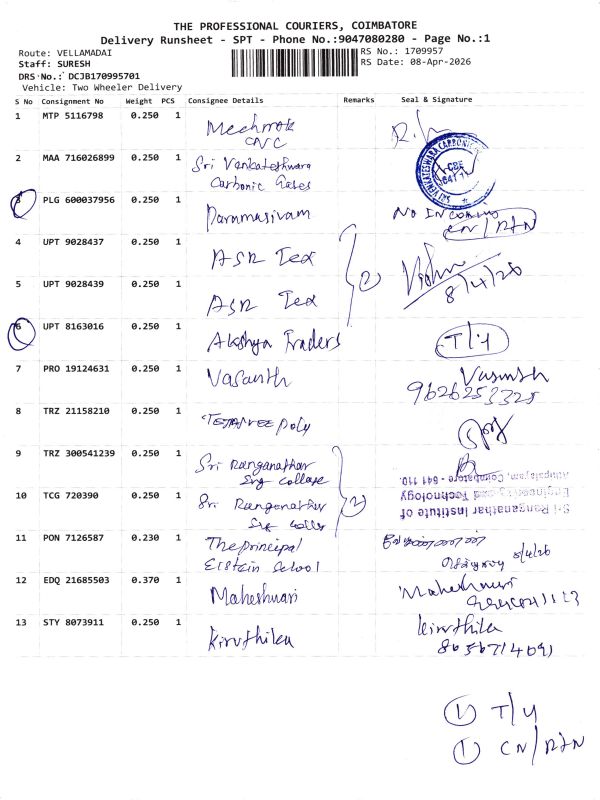 THE PROFESSIONAL COURIERS, COIMBATORE
Delivery Runsheet - SPT - Phone No.:9047080280 - Page No.:1
Route: VELLAMADAI
RS No.: 1709957
Staff: SURESH
RS Date: 08-Apr-2026
DRS No.: DCJB170995701
Vehicle: Two Wheeler Delivery
S No Consignment No Weight PCS Consignee Details Remarks Seal & Signature
1 MTP 5116798 0.250 1
CNC
2 MAA 716026899 0.250 1 Sri Venkateshwara
Carbonic Gases
3 PLG 600037956 0.250 1 Parammasivam No Incoming
CN/RTN
4 UPT 9028437 0.250 1 ASR Tex
2
8/4/26
5 UPT 9028439 0.250 1 ASR Tex
6 UPT 8163016 0.250 1 Akshya Traders T/Y
7 PRO 19124631 0.250 1 Vasanth Vasanth
9626253325
8 TRZ 21158210 0.250 1 Poly
9 TRZ 300541239 0.250 1 Sri Ranganathar
Eng College
2
10 TCG 720390 0.250 1 Sri Ranganathar
Sri Ranganathar Institute of
Engineering and Technology
Coimbatore - 641 110.
11 PON 7126587 0.230 1 The principal
School 8/4/26
12 EDQ 21685503 0.370 1 Maheshwari Maheshwari
13 STY 8073911 0.250 1 Kiruthika kiruthika
1 T/Y
1 CN/RTN